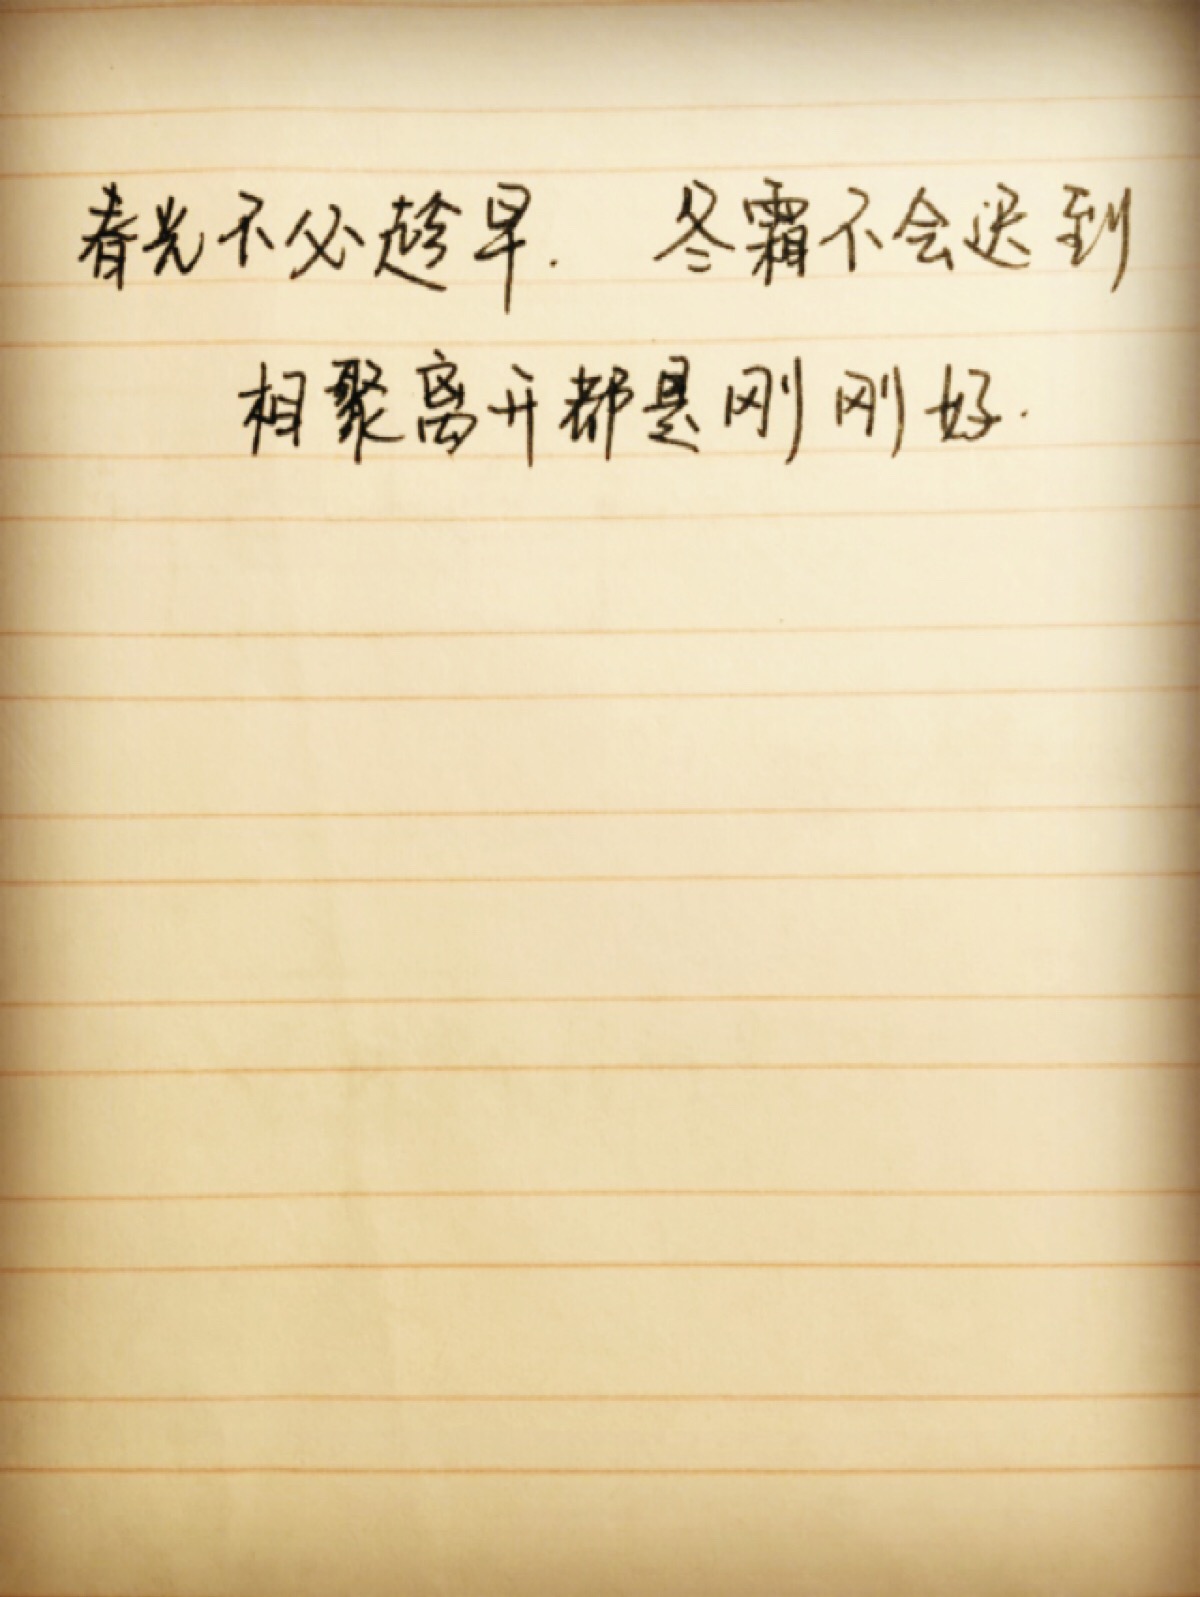 春光不必趁早. 冬霜不会迟到
相聚离开都是刚刚好.